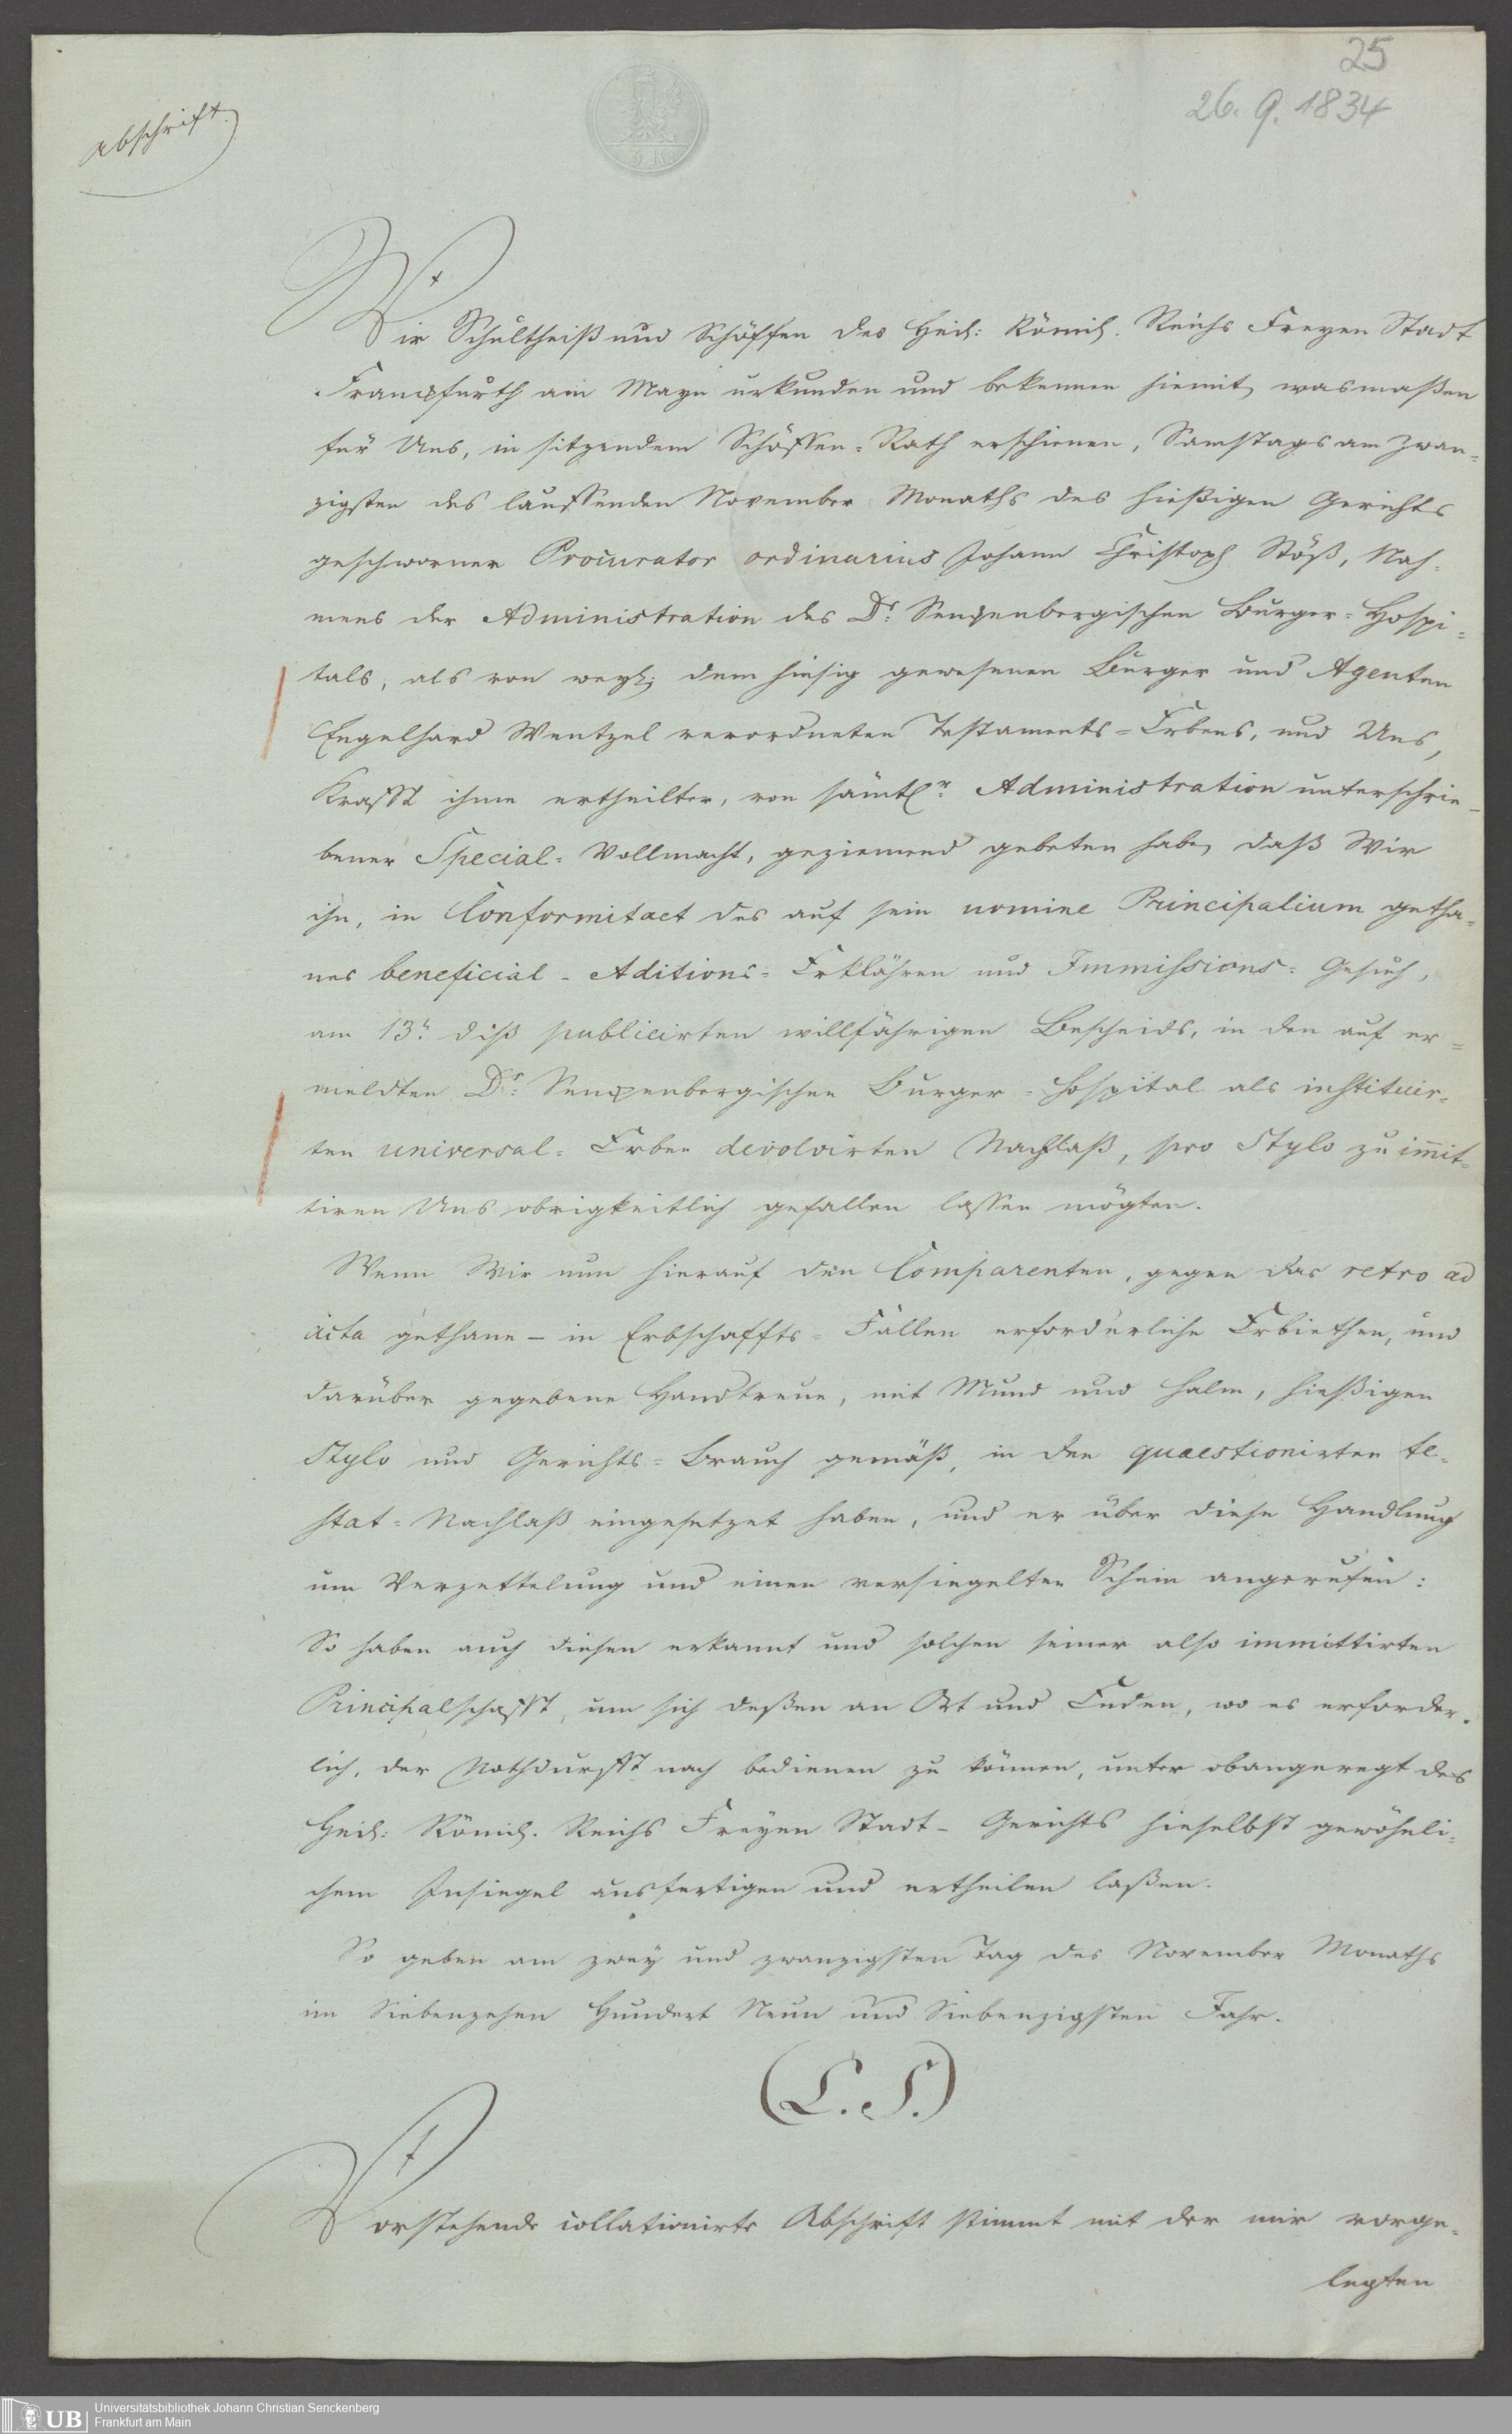 25
26. 9. 1834
Abschrift.
Wir Schultheiß und Schöffen des Heil: Römisch. Reichs Freyen Stadt
Franckfurth am Mayn urkunden und bekennen hiemit, wasmaßen
für Uns, in sitzendem Schöffen-Rath erschienen, Samstags am zwan-
zigsten des lauffenden November Monaths des hießigen Gerichts
geschworner Procurator ordinarius Johann Christoph Stöß, Nah-
mens der Administration des Dr. Senckenbergischen Burger-Hospi-
tals, als von weyl: dem hiesig gewesenen Burger und Agenten
Engelhard Wentzel verordneten Testaments-Erbens, und Uns,
Krafft ihme ertheilter, von sämtlr. Administration unterschrie-
bener Special-Vollmacht, geziemend gebeten habe, daß Wir
ihn, in Conformitaet des auf sein nomine Principalium getha-
nes beneficial-Aditions-Erklähren und Immissions-Gesuch,
am 13n. diß publicirten willfährigen Bescheids, in den auf er-
meldten Dr. Senckenbergischen Burger-Hospital als instituir-
ten universal-Erben devolvirten Nachlaß, pro Stylo zu im̄it-
tiren Uns obrigkeitlich gefallen lassen mögten.
Wenn Wir nun hierauf den Comparenten, gegen das retro ad
acta gethane – in Erbschaffts-Fällen erforderliche Erbiethen, und
darüber gegebene Handtreue, mit Mund und Halm, hießigen
Stylo und Gerichts-Brauch gemäß, in den quaestionirten te-
stat-Nachlaß eingesetzet haben, und er über diese Handlung
um Verzettelung und einen versiegelten Schein angerufen:
So haben auch diesen erkannt und solchen seiner also immittirten
Principalschafft, um sich deßen an Ort und Enden, wo es erforder-
lich, der Nothdurfft nach bedienen zu können, unter obangeregt des
Heil: Römisch. Reichs Freyen Stadt-Gerichts hieselbst gewöhnli-
chem Insiegel ausfertigen und ertheilen laßen.
So geben am zwey und zwanzigsten Tag des November Monaths
im Siebenzehen Hundert Neun und Siebenzigsten Jahr.
(L. S.)
Vorstehende collationirte Abschrift stimmt mit der mir vorge-
legten
UB
Universitätsbibliothek Johann Christian Senckenberg
Frankfurt am Main